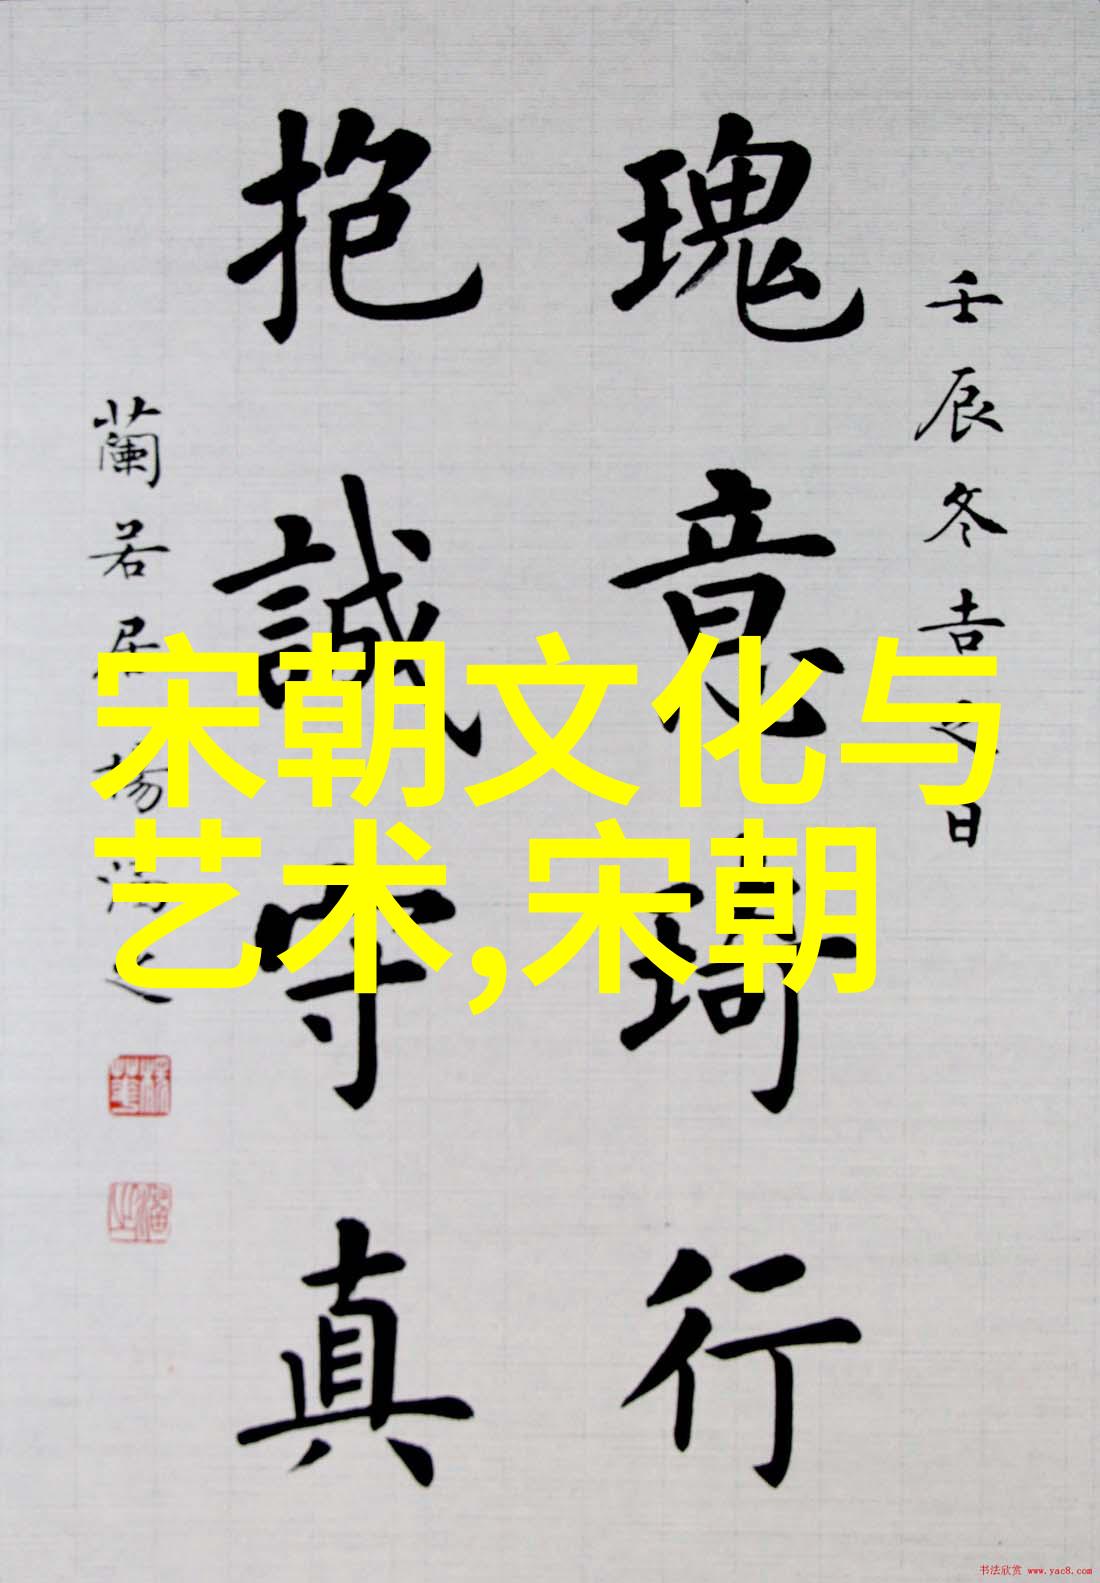 壬辰冬吉之日
瑰意琦行
抱誠守真
蘭若居
宋朝文化与
艺术,宋朝
书法欣赏 www.yac8.com